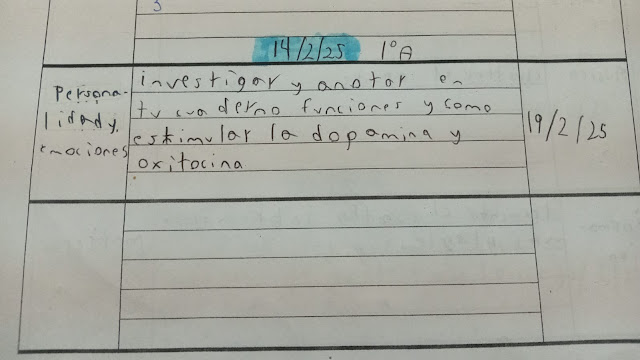 3
14/2/25 1°A
Persona-
lidad y
emociones
investigar y anotar en
tu cuaderno funciones y como
estimular la dopamina y
oxitocina
19/2/25